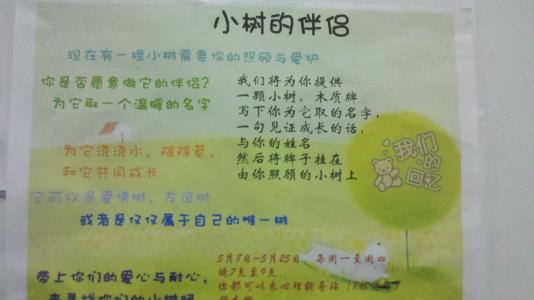 小树的伴侣
现在有一棵小树需要你的照顾与爱护
你是否愿意做它的伴侣?
为它取一个温暖的名字
我们将为你提供
一颗小树,木质牌
写下你为它取的名字,
一句见证成长的话,
与你的姓名
然后将牌子挂在
由你照顾的小树上
为它浇浇水,除除草,
和它共同成长
它可以是爱情树,友谊树
或者是仅仅属于自己的唯一树
我们
的
回忆
5月8日~5月25日,每周一至周四
晚7点至9点,
你都可以来心理辅导站
带上你们的爱心与耐心,
来寻找你们的小树吧